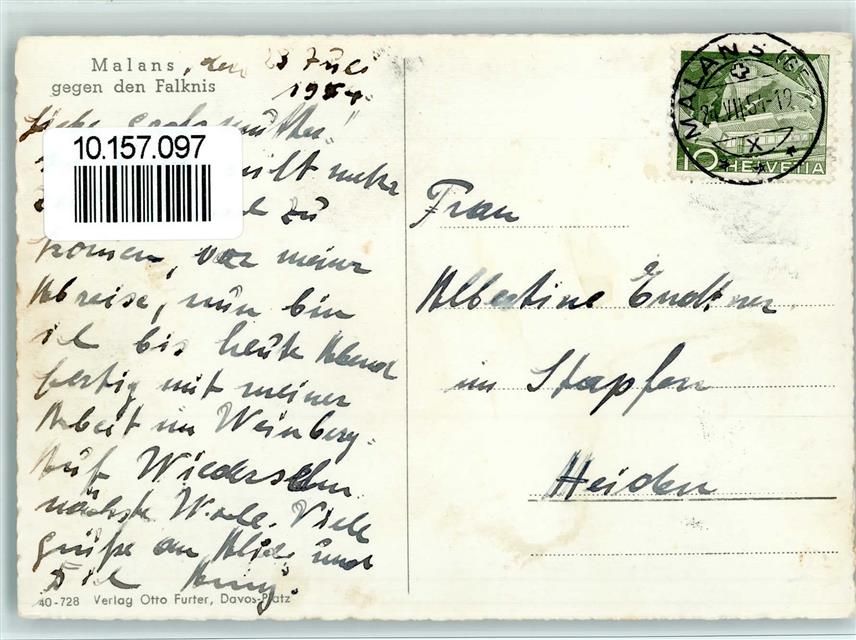 Malans, den 23 Juli
gegen den Falknis
1954.
Liebe Großmutter!
10.157.097
nicht mehr
zu
komen, vor meiner
Abreise, nun bin
ich bis heute Abend
fertig mit meiner
Arbeit im Weinberg.
Auf Wiedersehn
nächste Woche. Viele
grüße an Alice und
Dich
40-728 Verlag Otto Furter, Davos-Platz
MALANS (GR)
VII.54-19
X
10 HELVETIA
Frau
Albertine
im Stapfen
Heiden